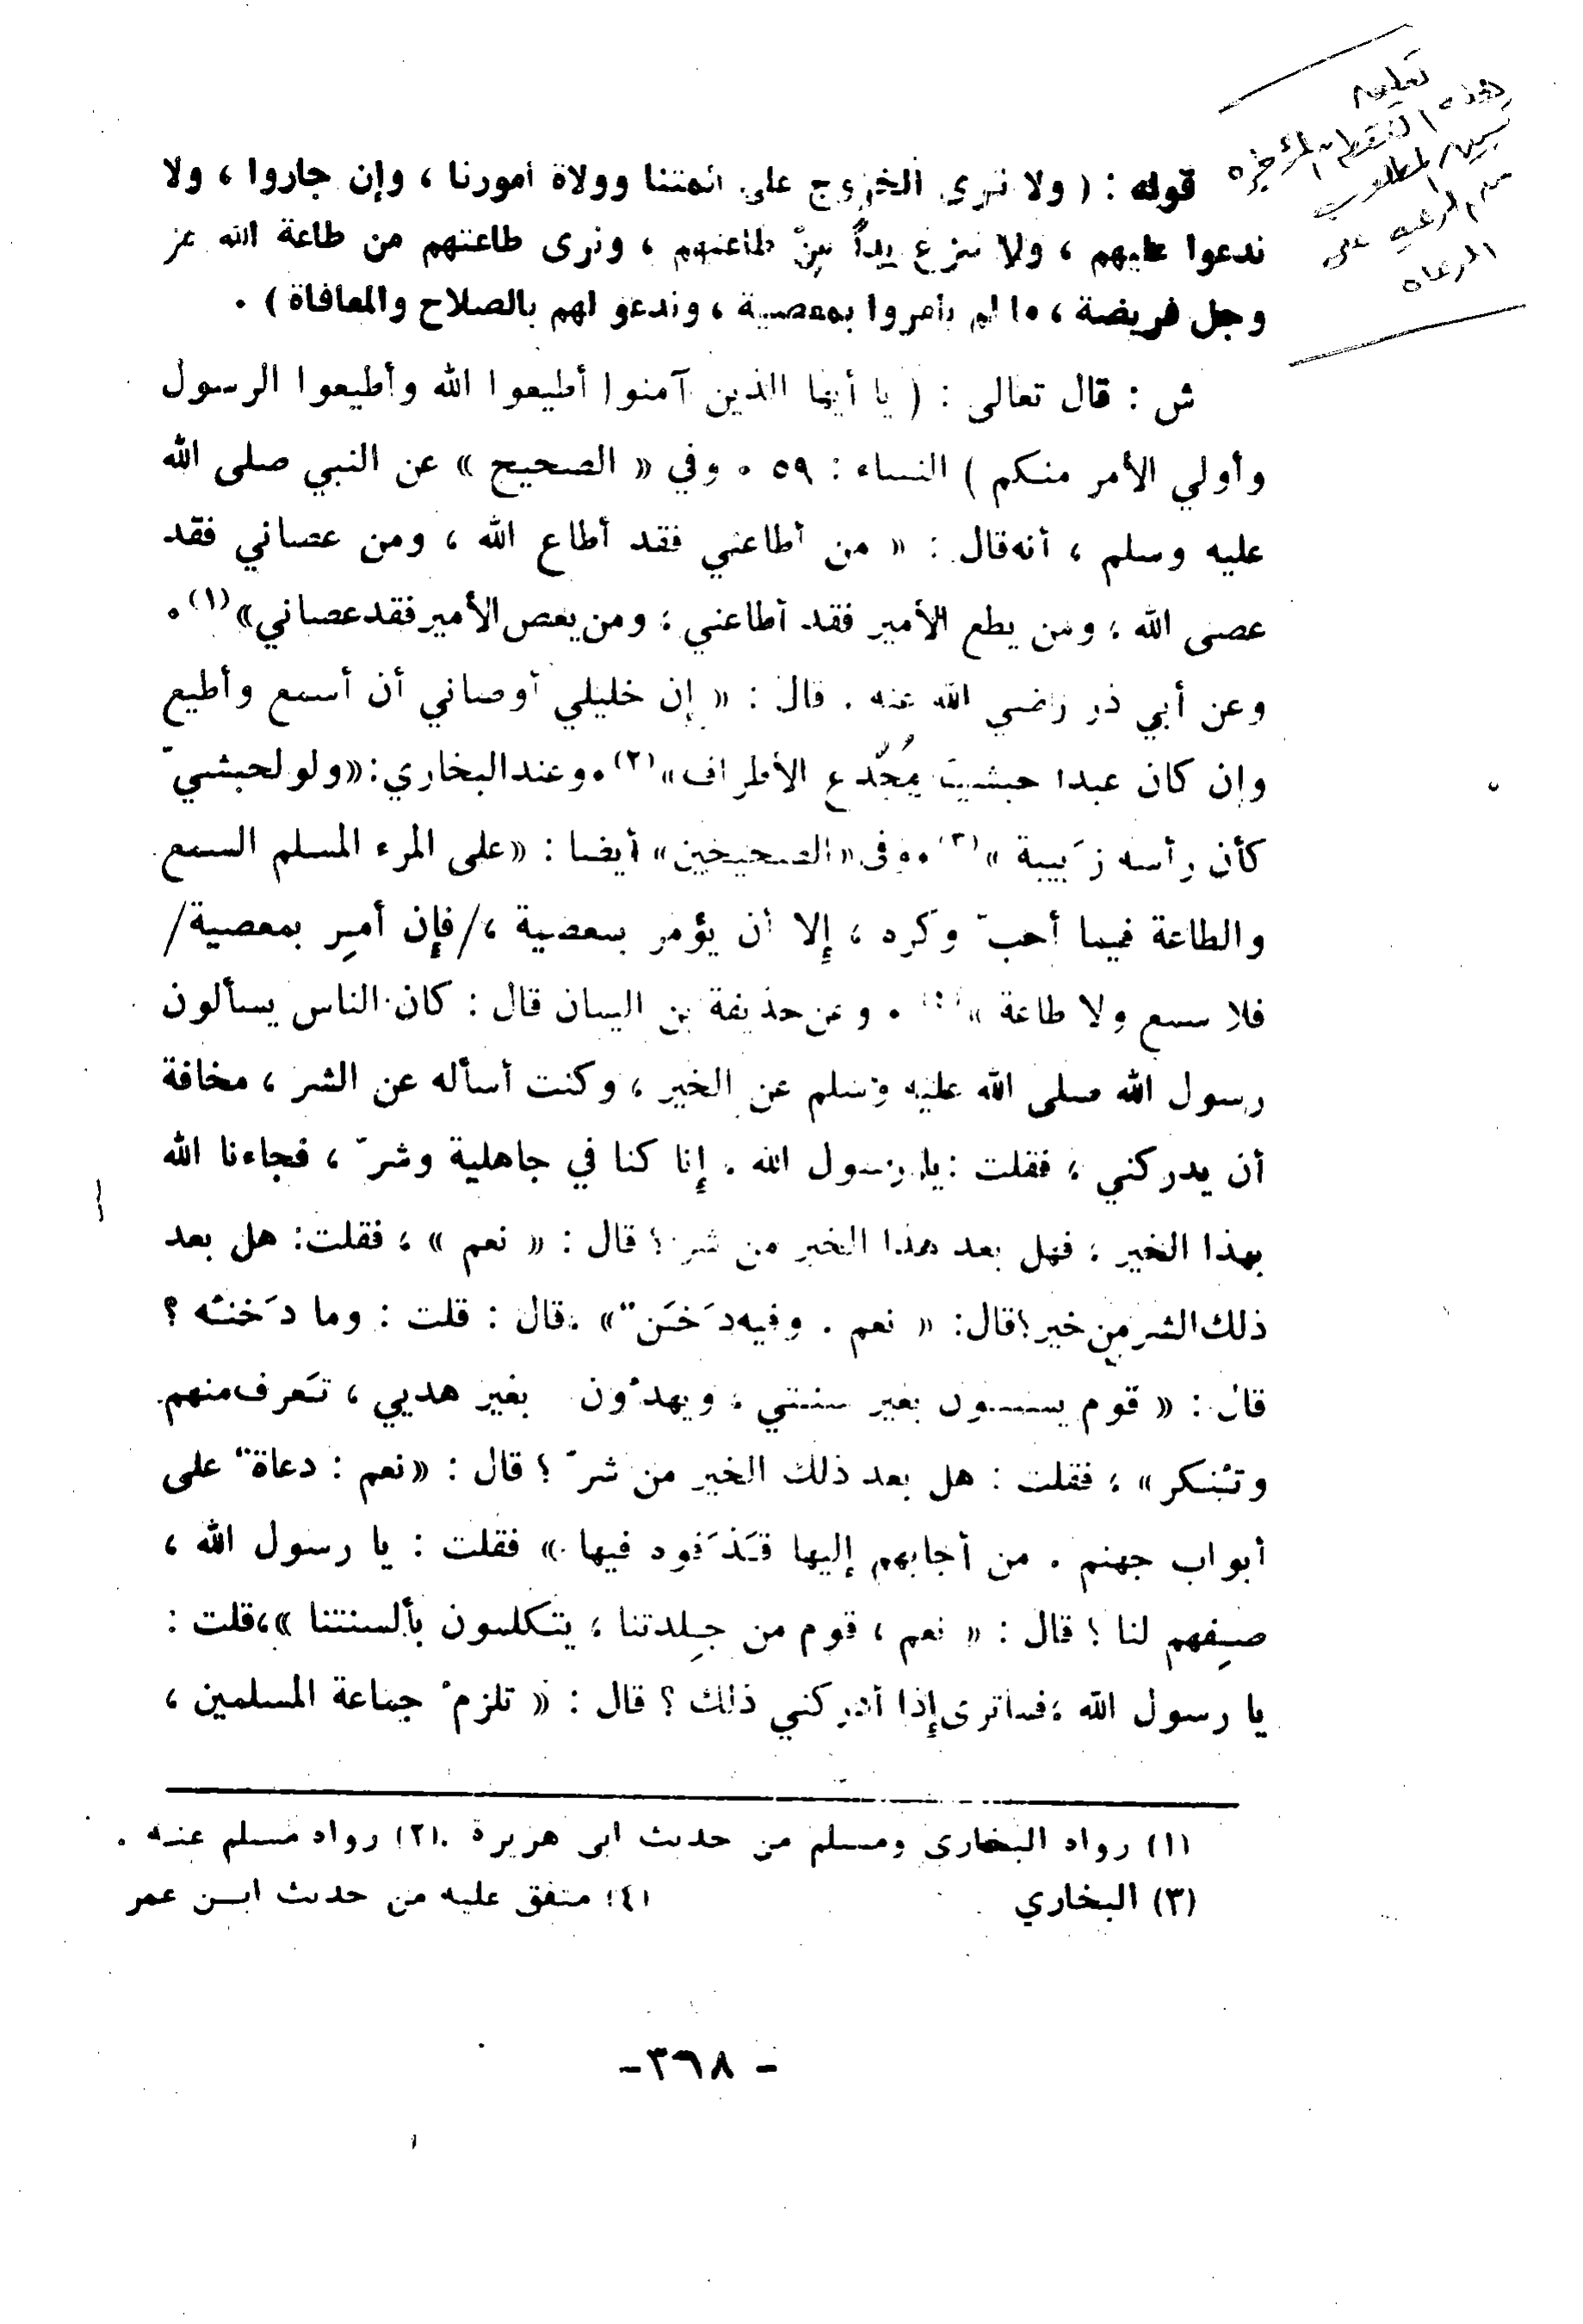 تعليم
هذه النقطة الأخيرة
المطلوب
من الرعية على
الرعاه
قوله : ( ولا نرى الخروج على ائمتنا وولاة أمورنا ، وإن جاروا ، ولا
ندعوا عليهم ، ولا ننزع يداً من طاعتهم ، ونرى طاعتهم من طاعة الله عز
وجل فريضة ، ما لم يأمروا بمعصية ، وندعو لهم بالصلاح والمعافاة ) .
ش : قال تعالى : ( يا أيها الذين آمنوا أطيعوا الله وأطيعوا الرسول
وأولي الأمر منكم ) النساء : ٥٩ . وفي « الصحيح » عن النبي صلى الله
عليه وسلم ، أنه قال : « من أطاعني فقد أطاع الله ، ومن عصاني فقد
عصى الله ، ومن يطع الأمير فقد أطاعني ، ومن يعص الأمير فقد عصاني » (١) .
وعن أبي ذر رضي الله عنه . قال : « إن خليلي أوصاني أن أسمع وأطيع
وإن كان عبدا حبشيا مُجَدّع الأطراف » (٢) . وعند البخاري : « ولو لحبشيّ
كأن رأسه زَبيبة » (٣) . وفي « الصحيحين » أيضا : « على المرء المسلم السمع
والطاعة فيما أحبّ وكره ، إلا أن يؤمر بمعصية ، / فإن أمِر بمعصية /
فلا سمع ولا طاعة » (٤) . وعن حذيفة بن اليمان قال : كان الناس يسألون
رسول الله صلى الله عليه وسلم عن الخير ، وكنت أسأله عن الشر ، مخافة
أن يدركني ، فقلت : يا رسول الله . إنا كنا في جاهلية وشرّ ، فجاءنا الله
بهذا الخير ، فهل بعد هذا الخير من شر ؟ قال : « نعم » ، فقلت : هل بعد
ذلك الشر من خير ؟ قال : « نعم . وفيه دَخَن » . قال : قلت : وما دَخَنُه ؟
قال : « قوم يستنون بغير سنتي ، ويهدُون بغير هديي ، تَعرف منهم
وتُنكر » ، فقلت : هل بعد ذلك الخير من شرّ ؟ قال : « نعم : دعاةٌ على
أبواب جهنم . من أجابهم إليها قَذَفوه فيها » فقلت : يا رسول الله ،
صِفهم لنا ؟ قال : « نعم ، قوم من جِلدتنا ، يتكلمون بألسنتنا » ، قلت :
يا رسول الله ، فما ترى إذا أدركني ذلك ؟ قال : « تلزمُ جماعة المسلمين ،
(١) رواه البخارى ومسلم من حديث ابى هريرة . (٢) رواه مسلم عنه .
(٣) البخاري (٤) متفق عليه من حديث ابن عمر
- ٣٦٨ -